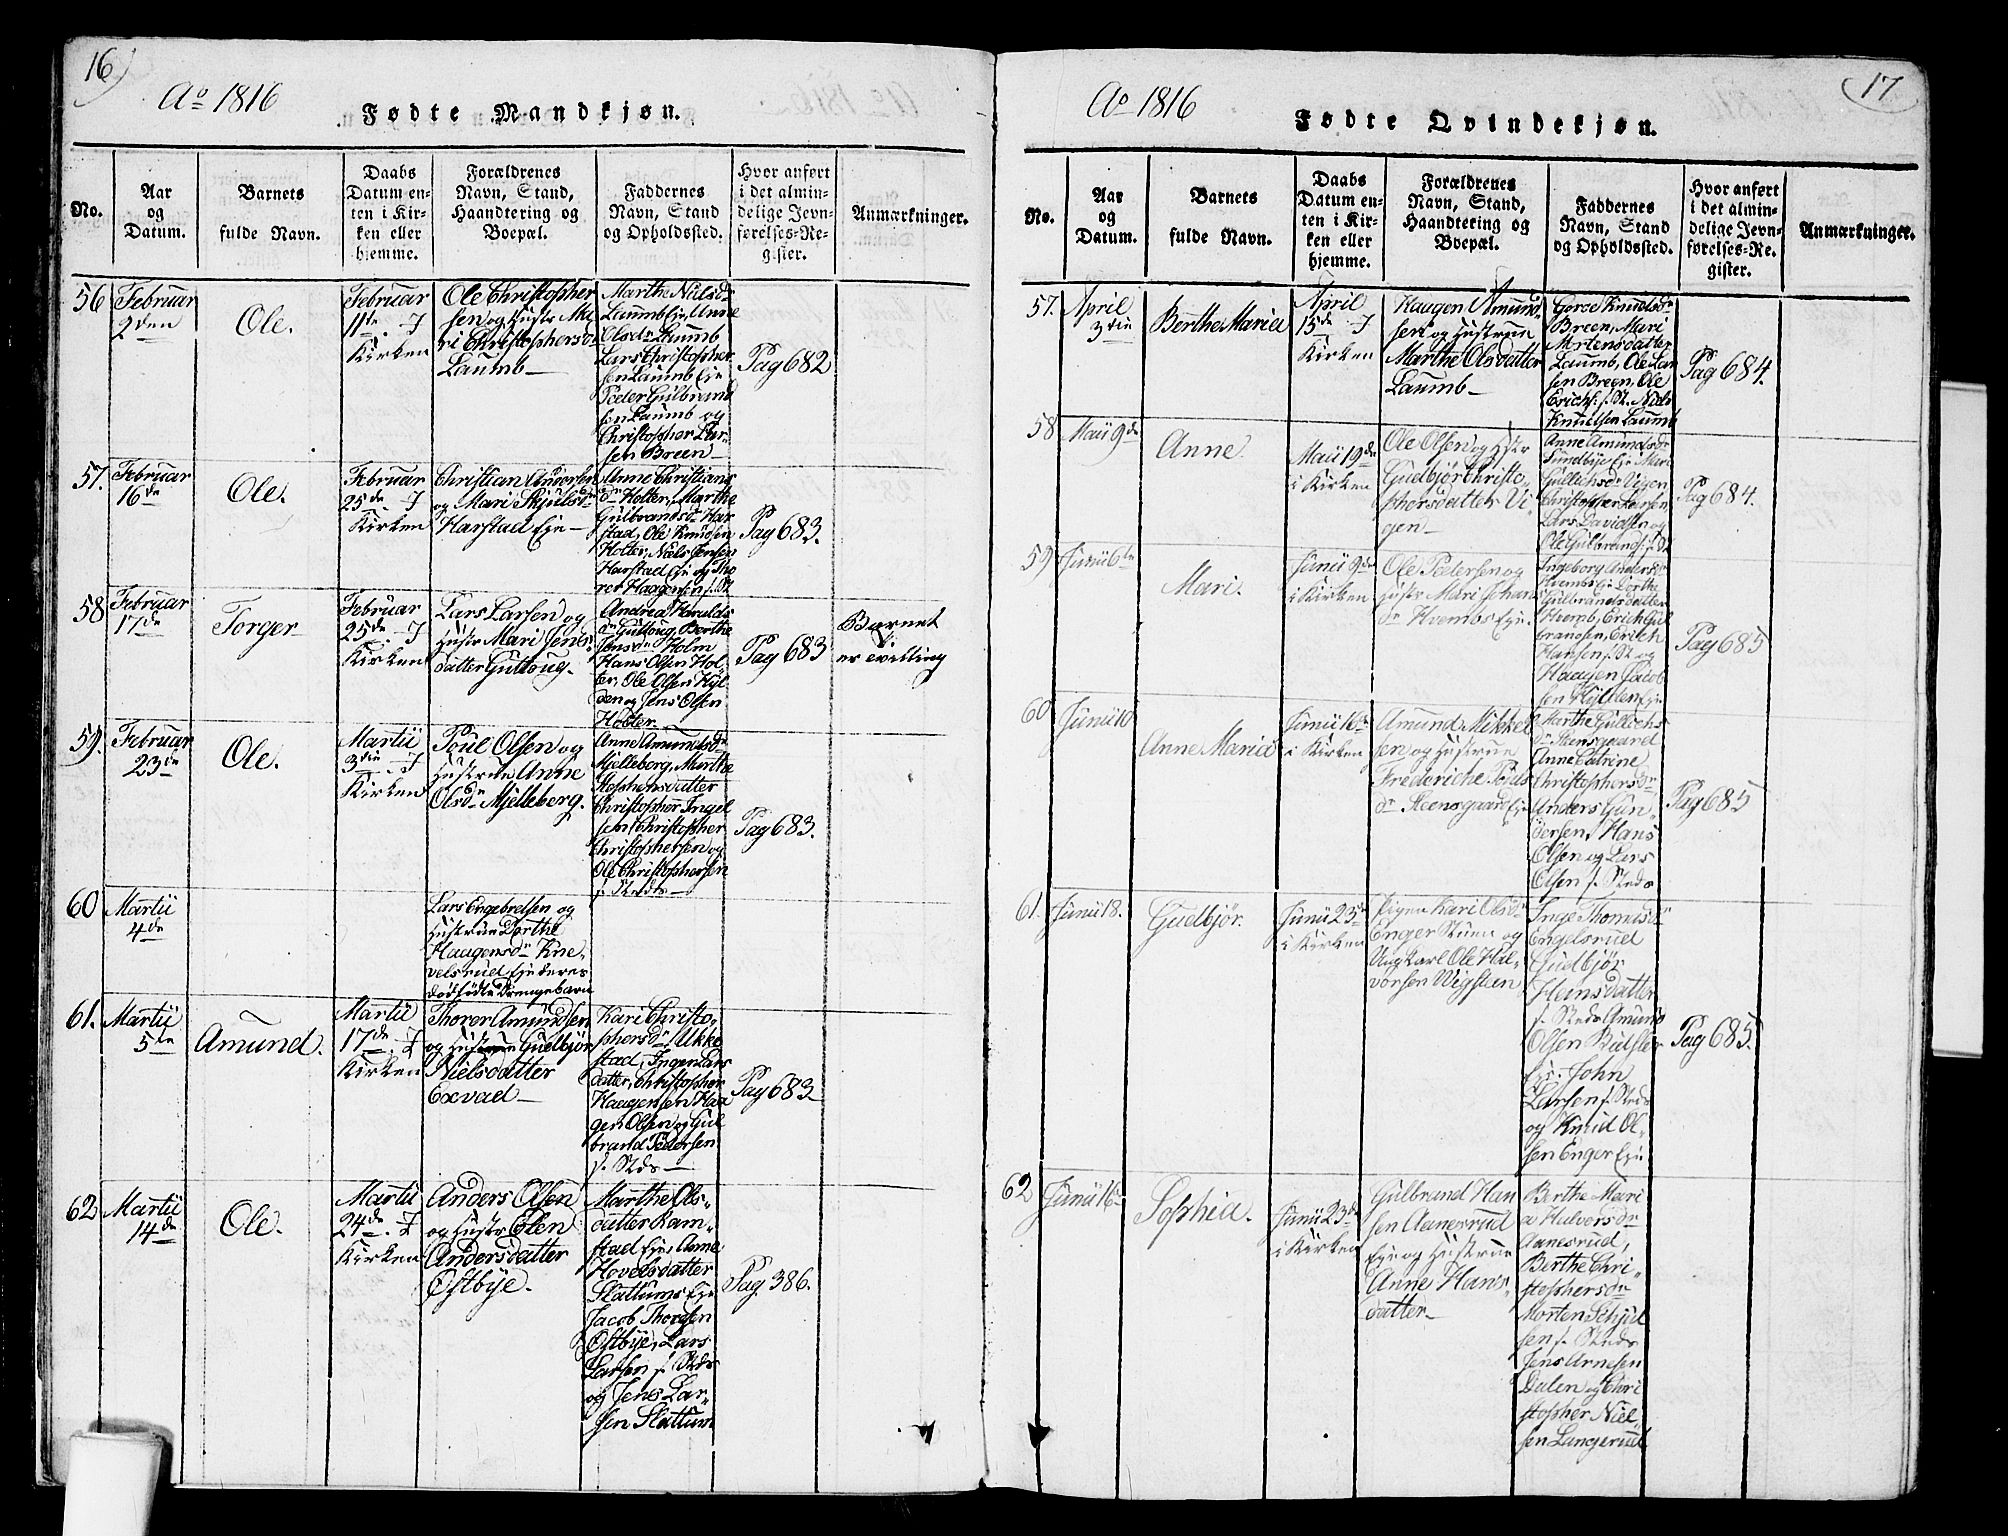 16)
Ao 1816
Fødte Mandkjøn.
No.
Aar
og
Datum.
Barnets
fulde Navn.
Daabs
Datum en-
ten i Kir-
ken eller
hjemme.
Forældrenes
Navn, Stand,
Haandtering og
Boepæl.
Faddernes
Navn, Stand
og Opholdssted.
Hvor anført
i det almin-
delige Jevn-
førelses-Re-
gister.
Anmærkninger.
56
Februar
2den
Ole.
Februar
11te - I
Kirken
Ole Christopher
sen og Hustr Ma
ri Christophersdr
Laumb
Marthe Nielsdr
Laumb Eje, Anne
Olsdr Laumb
Lars Christopher
sen Laumb Eje
Peder Gulbrand
sen Laumb og
Christopher Lar-
sen Breen
Pag 682
57.
Februar
16de
Ole.
Februar
25de - I
Kirken
Christian Andersen
og Mari Skjulsdr
Harstad Eje
Anne Christians
dr Holter, Marthe
Gulbrandsdr Har
stad, Ole Knudsen
Holter, Niels Jensen
Harstad Eje og Tho
rer Haagensen f. St
Pag 683.
58
Februar
17de
Torger
Februar
25de - I
Kirken
Lars Larsen og
Hustr Mari Jens-
datter Guttoug.
Andrea Haralds
dr Guttoug, Berthe
Jensdr Holm
Hans Olsen Hol-
ter, Ole Olsen Kyl
den og Jens Olsen
Holter
Pag 683
Barnet
er tvilling
59.
Februar
23de
Ole.
Martii
3die - I
Kirken
Poul Olsen og
Hustrue Anne
Olsdr Mjelleberg.
Anne Amundsdr
Mjelleberg, Marthe
Stephensdatter
Christopher Ingel
sen Christopher
Christophersen og
Ole Christophersen
f. Steds
Pag 683.
60
Martii
4de
Lars Engebretsen og
Hustrue Dorthe
Haagensdr Kne-
velsrud Eje deres
dødfødte Drengebarn
61.
Martii
5te
Amund.
Martii
17de - I
Kirken
Thorer Amundsen
og Hustrue Gudbjør
Nielsdatter
Exvad
Kari Christo-
phersdr Ukke
stad, Inger Lars
datter, Christopher
Haagensen Haa
gen Olsen og Gul
brand Pedersen
f. Steds
Pag 683
62
Martii
14de
Ole.
Martii
24de - I
Kirken
Anders Olsen
og Hustr Elen
Andersdatter
Østbye.
Marthe Ols-
datter Ram-
stad Eje, Anne
Hovelsdatter
Slattums Eje
Jacob Thorsen
Østbye, Lars
Larsen f. Steds
og Jens Lar-
sen Slattum
Pag 386.
17
Ao 1816
Fødte Qvindekjøn.
No.
Aar
og
Datum.
Barnets
fulde Navn.
Daabs
Datum en-
ten i Kir-
ken eller
hjemme.
Forældrenes
Navn, Stand,
Haandtering og
Boepæl.
Faddernes
Navn, Stand
og Opholdssted.
Hvor anført
i det almin-
delige Jevn-
førelses-Re-
gister.
Anmærkninger.
57.
April
3die
Berthe Maria
April
15de - I
Kirken
Haagen Amund
sen og Hustrue
Marthe Olsdatter
Laumb
Knudsdr
Breen, Mari
Mortensdatter
Laumb, Ole Lar
sen Breen, Ole
Erichs: f. St. Niels
Knudsen Laumb
Pag 684.
58
Maii 9de
Anne
Maii 19de
i Kirken
Ole Olsen og Hstr
Gudbjør Christo-
phersdatter Vi-
gen
Anne Amundsdr
Sundbye Eje, Mari
Gullichsdr Vigen
Christopher Larsen
Lars Davidsen og
Ole Gulbrands: f. St
Pag 684.
59
Junii 6te
Mari.
Junii 9de
i Kirken
Ole Pedersen og
Hustr Mari Johans
dr Hvembs Eje.
Ingeborg Andersdr
Hvembs Eje Dorthe
Gulbrandsdatter
Hvemb, Erich Gul
brandsen, Erich
Hansen f. St og
Haagen Jacob
sen Kylden Eje
Pag 685
60
Junii 10
Anne Maria
Junii 16de
i Kirken
Amund Mikkel
sen og Hustrue
Frederiche Pouls
dr Steensgaard Eje
Marthe Gullichs
dr Steensgaard
Anne Catrine
Christophersdr
Anders Gun-
dersen, Hans
Olsen og Lars
Olsen f. Steds
Pag 685
61.
Junii 18.
Gudbjør.
Junii 23de
i Kirken
Pigen Kari Olsdr
Enger Stuen og
Ung Karl Ole Hal-
vorsen Wigsteen
Inge Thomasdr
Engelsrud
Gudbjør
Hansdatter
f. Steds Amund
Olsen
Eje. John
Larsen f. Steds
og Knud Ol-
sen Enger Eje
Pag 685.
62
Junii 16
Sophia.
Junii 23de
i Kirken
Gulbrand Han
sen Aanesrud
Eje og Hustrue
Anne Hans-
datter
Berthe Mari
a Halvorsdr
Aanesrud,
Berthe Chri-
stophersdr
Morten Schjul
sen f. Steds
Jens Arnesen
Dalen og Chri
stopher Niel-
sen Langerud